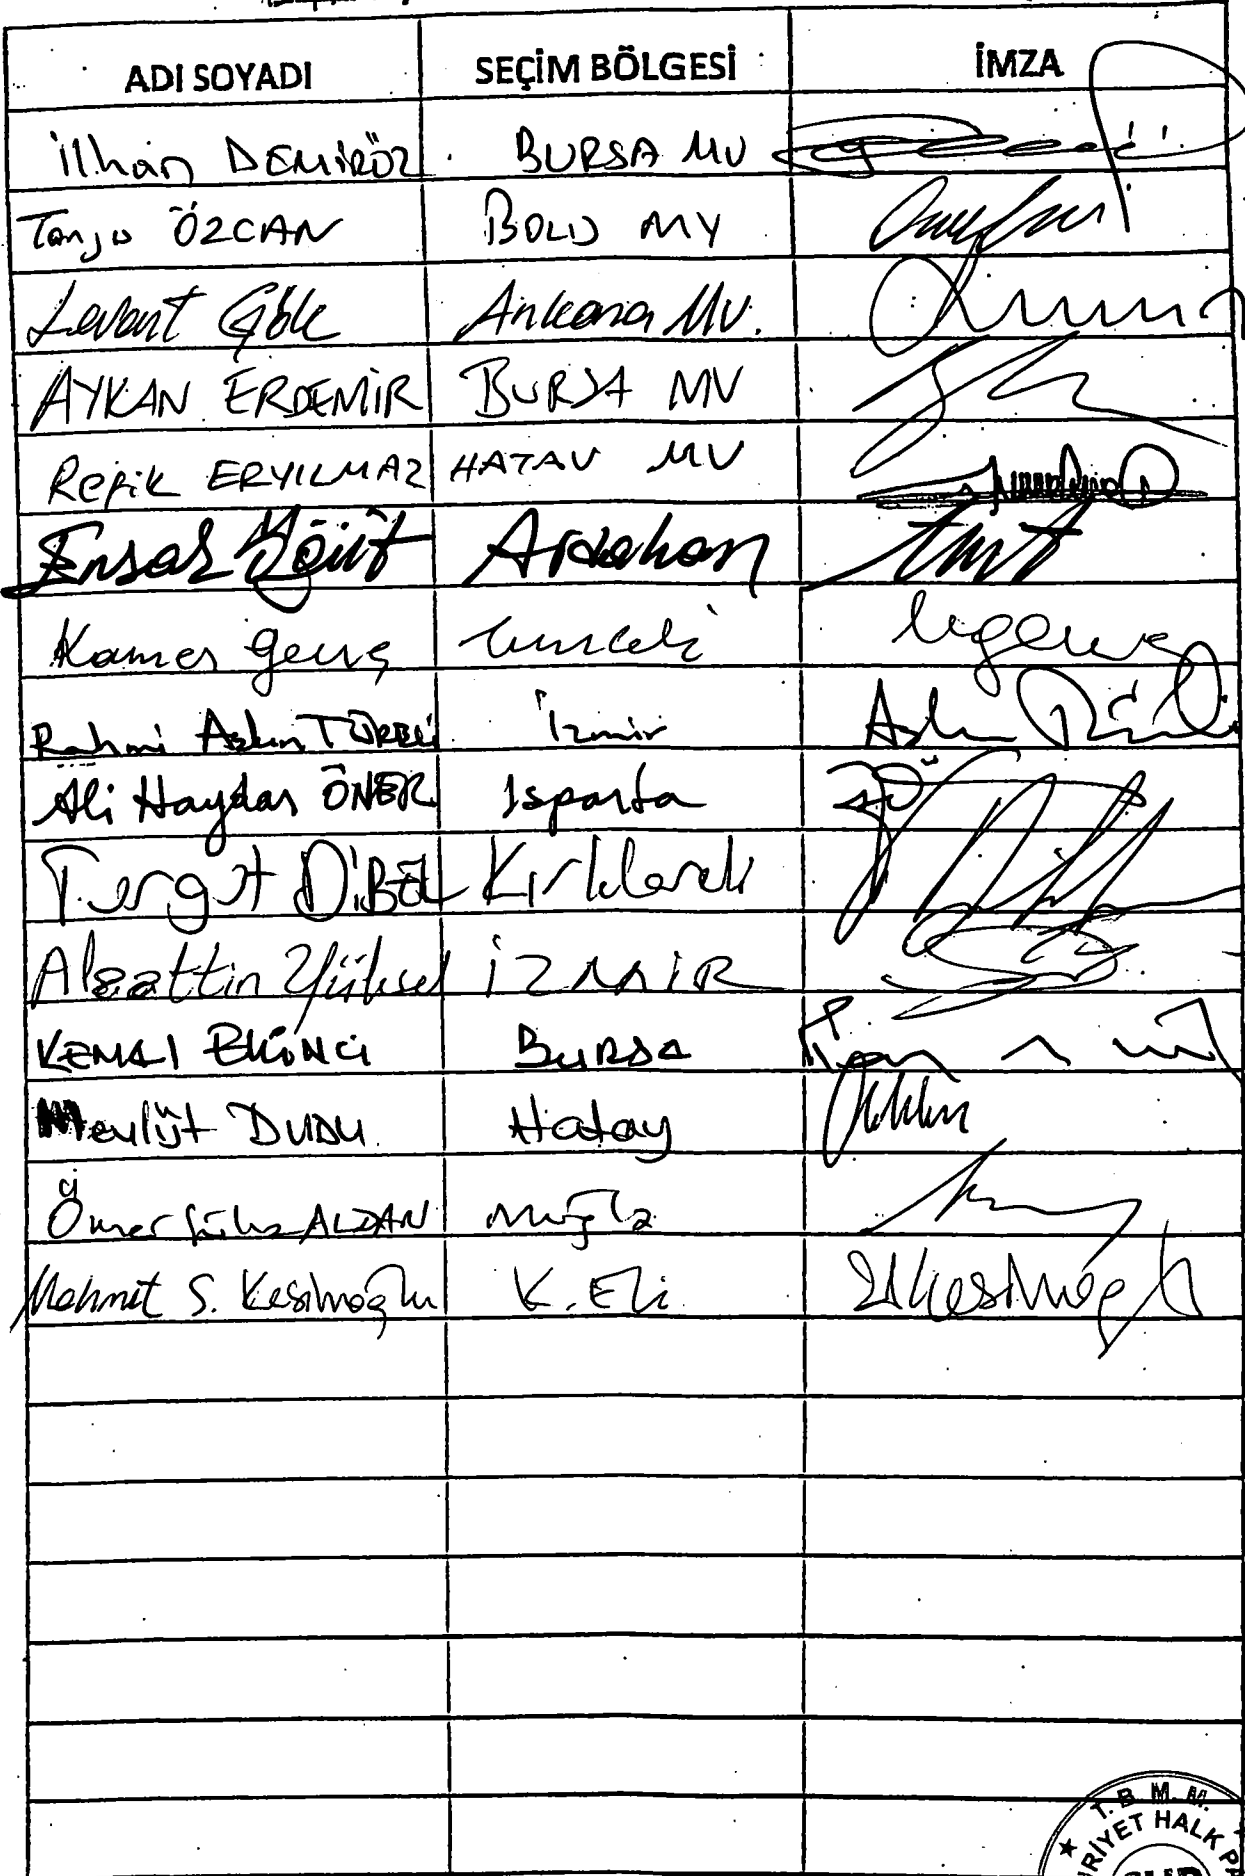 ADI SOYADI SEÇİM BÖLGESİ İMZA
İlhan DEMİRÖZ BURSA MV
Tanju ÖZCAN BOLU MV
Levent Gök Ankara Mv.
AYKAN ERDEMİR BURSA MV
Refik ERYILMAZ HATAY MV
Ensar Öğüt Ardahan
Kamer Genç Tunceli
Rahmi Aşkın TÜRELİ İzmir
Ali Haydar ÖNER Isparta
Turgut DİBEK Kırklareli
Alaattin Yüksel İZMİR
KEMAL EKİNCİ BURSA
Mevlüt DUDU Hatay
Ömer Süha ALDAN Muğla
Mehmet S. Kesimoğlu K. Eli
T. B. M. M.
RİYET HALK PA